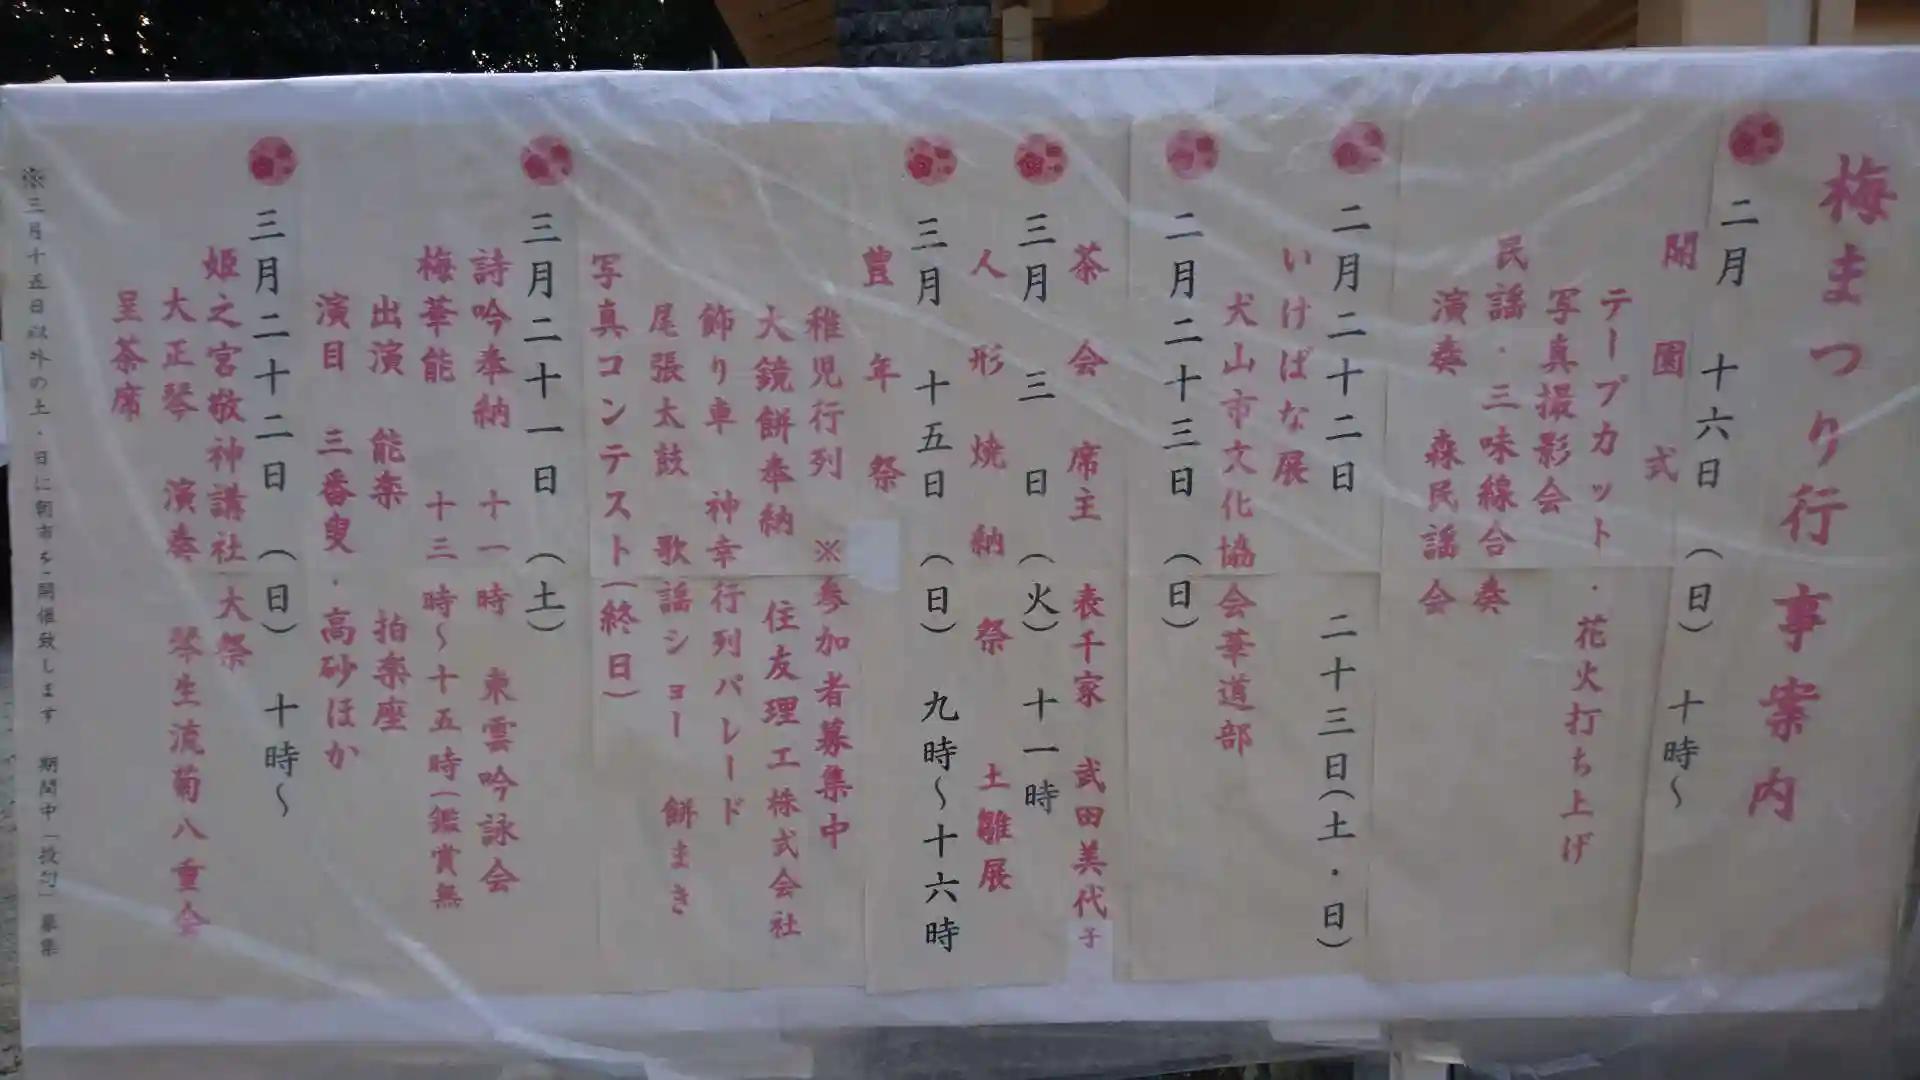 梅まつり行事案内
二月 十六日 (日) 十時～
開園式
テープカット・花火打ち上げ
写真撮影会
民謡・三味線合奏
演奏 森民謡会
二月二十二日 二十三日(土・日)
いけばな展
犬山市文化協会華道部
二月二十三日 (日)
茶会 席主 表千家 武田美代子
三月 三 日 (火) 十一時
人形焼納祭 土雛展
三月 十五日 (日) 九時～十六時
豊年祭
稚児行列 ※参加者募集中
大鏡餅奉納 住友理工株式会社
飾り車 神幸行列パレード
尾張太鼓 歌謡ショー 餅まき
写真コンテスト(終日)
三月二十一日 (土)
詩吟奉納 十一時 東雲吟詠会
梅華能 十三時～十五時(鑑賞無
出演 能楽 拍楽座
演目 三番叟・高砂ほか
三月二十二日 (日) 十時～
姫之宮敬神講社大祭
大正琴 演奏 琴生流菊八重会
呈茶席
※三月十五日以外の土・日に朝市を開催致します 期間中「投句」募集